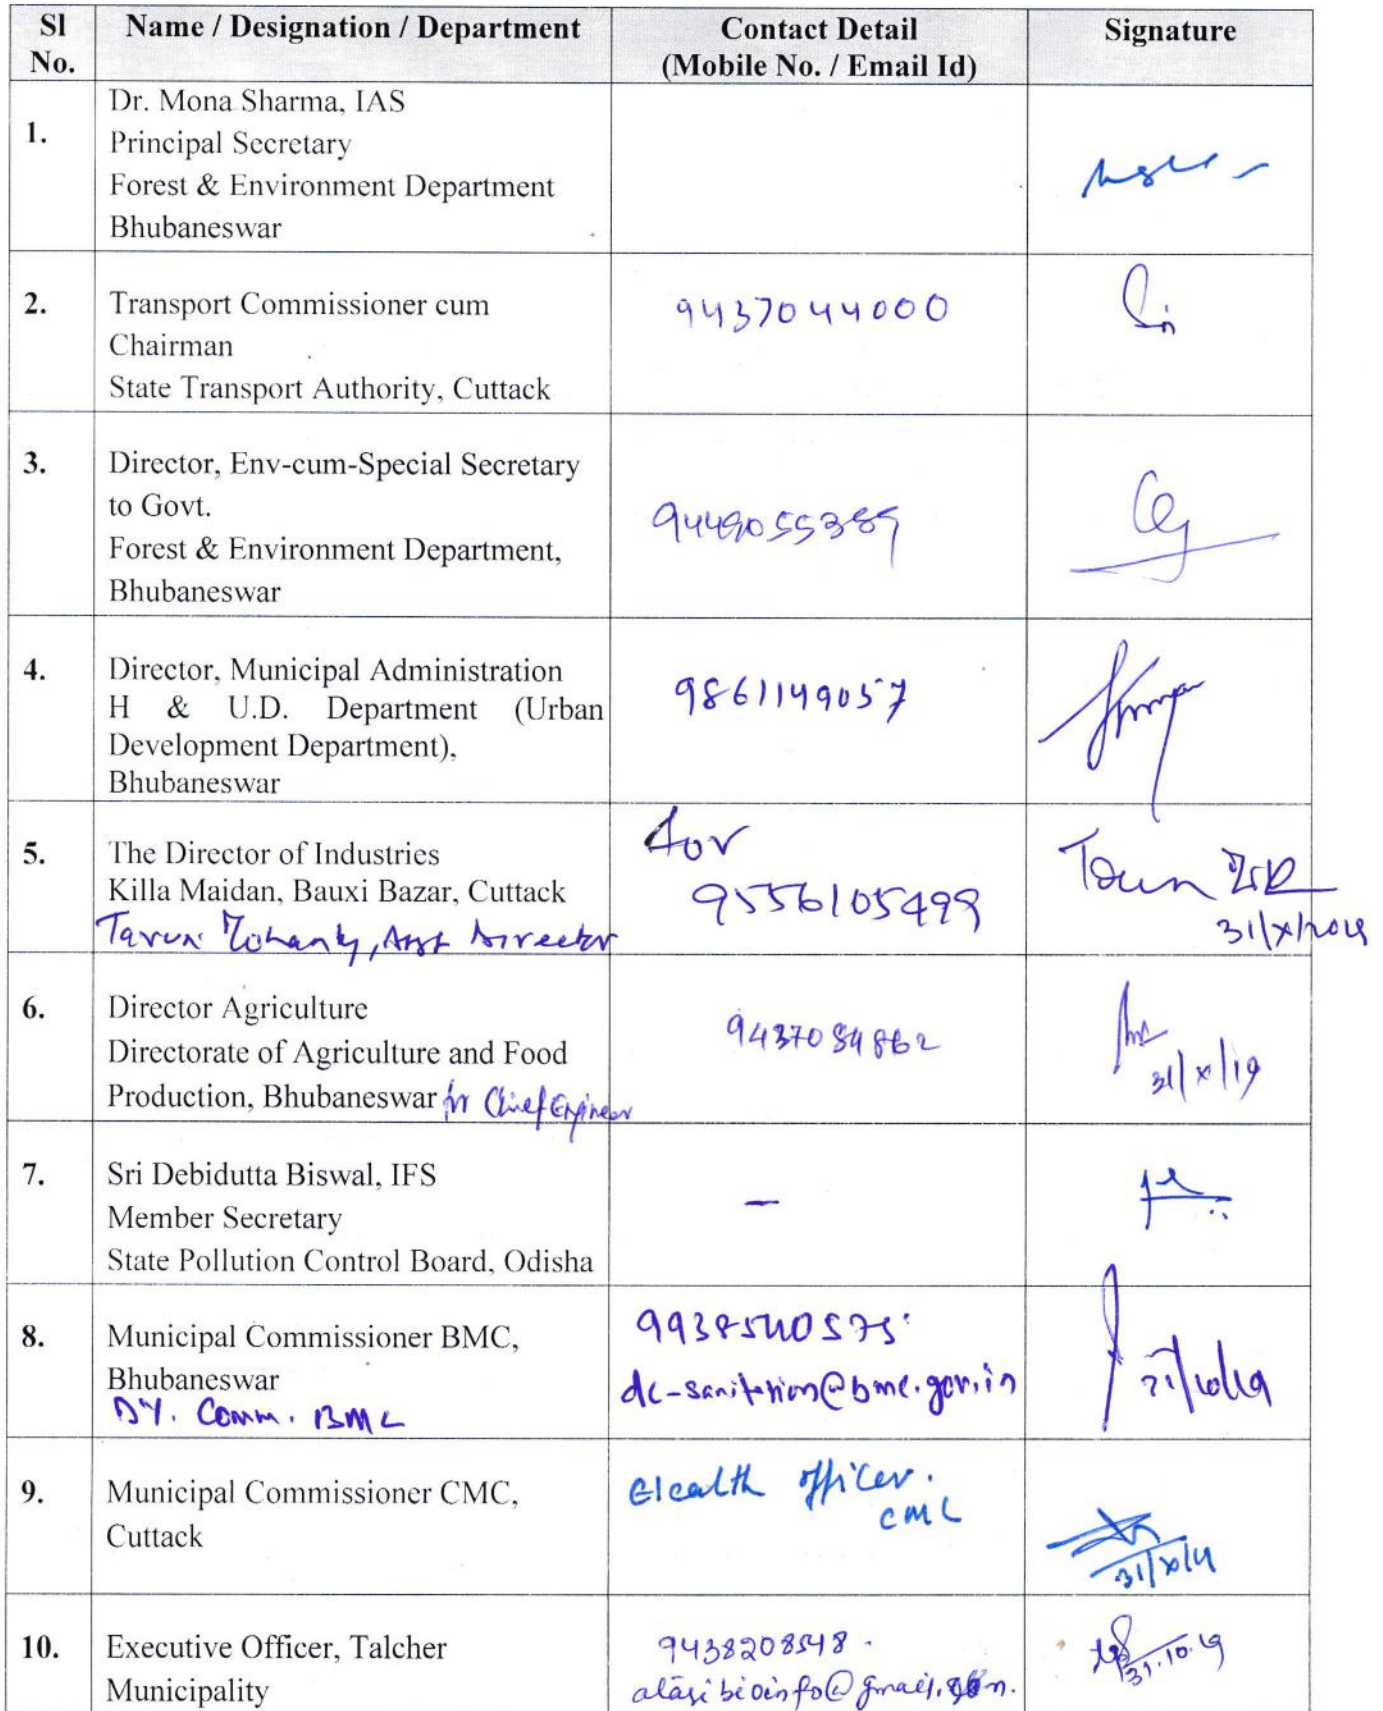 Sl No.
Name / Designation / Department
Contact Detail
(Mobile No. / Email Id)
Signature
1.
Dr. Mona Sharma, IAS
Principal Secretary
Forest & Environment Department
Bhubaneswar
2.
Transport Commissioner cum
Chairman
State Transport Authority, Cuttack
9437044000
3.
Director, Env-cum-Special Secretary
to Govt.
Forest & Environment Department,
Bhubaneswar
9449055389
4.
Director, Municipal Administration
H & U.D. Department (Urban
Development Department),
Bhubaneswar
9861149057
5.
The Director of Industries
Killa Maidan, Bauxi Bazar, Cuttack
Tarun Mohanty, Asst Director
for
9556105499
Tarun
31/X/2019
6.
Director Agriculture
Directorate of Agriculture and Food
Production, Bhubaneswar for Chief Engineer
9437084862
31/x/19
7.
Sri Debidutta Biswal, IFS
Member Secretary
State Pollution Control Board, Odisha
–
8.
Municipal Commissioner BMC,
Bhubaneswar
DY. Comm. BMC
9938540575
dc-sanitation@bmc.gov.in
31/10/19
9.
Municipal Commissioner CMC,
Cuttack
Health officer.
CMC
10.
Executive Officer, Talcher
Municipality
9438208548.
31.10.19